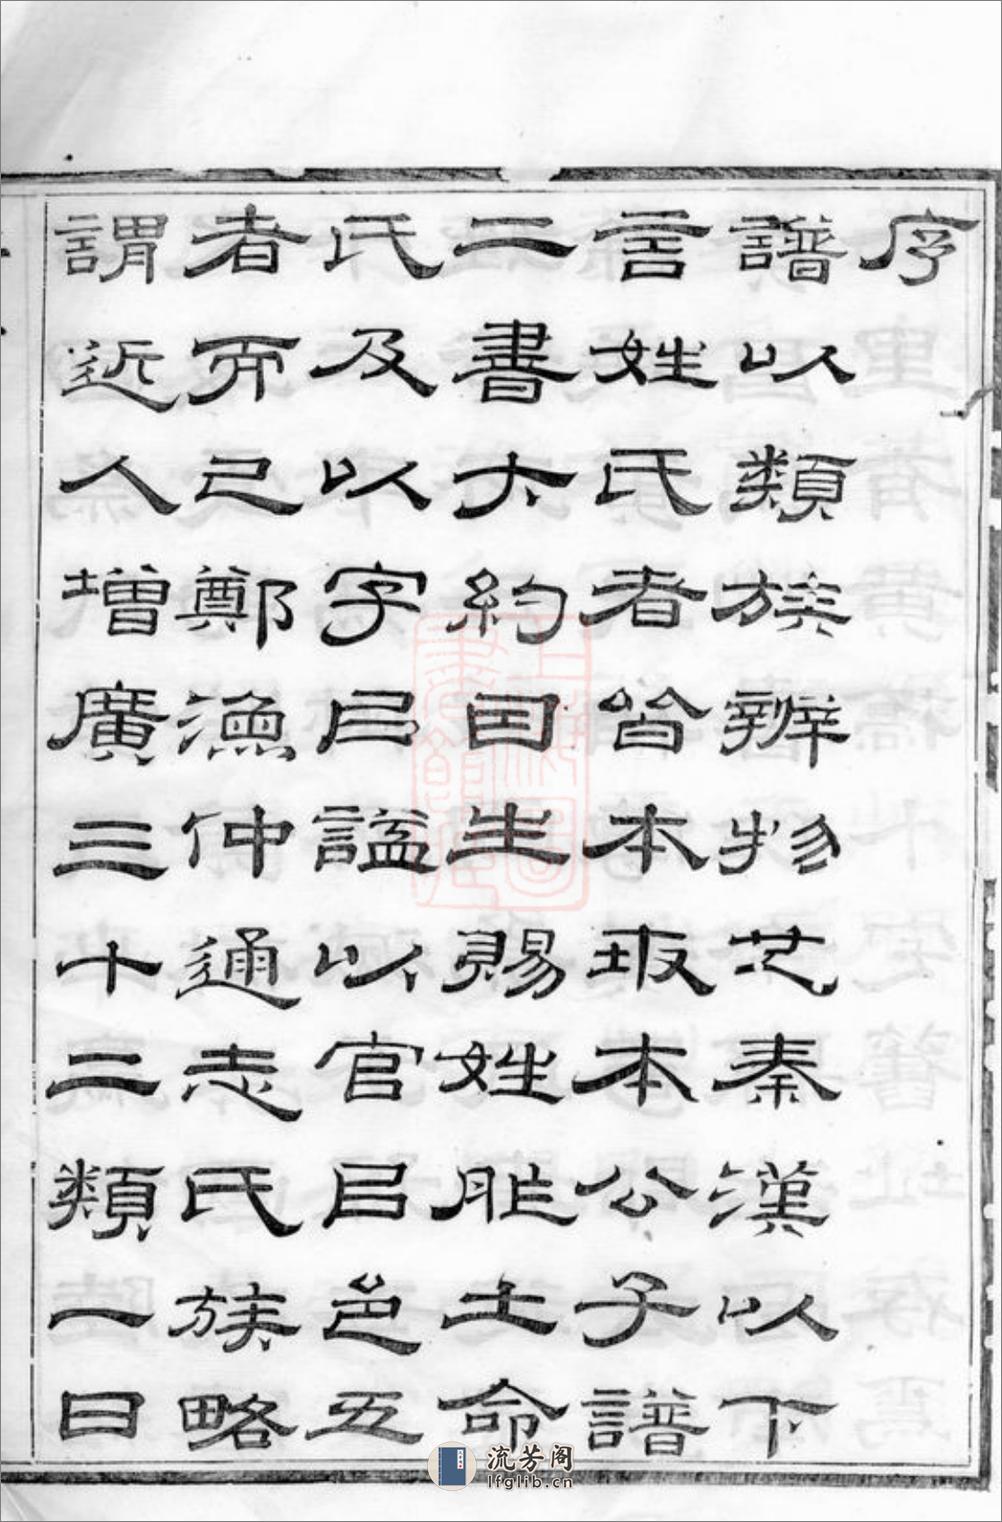 序
譜以類族辨物芝秦漢以下
言姓氏者皆本㘴本公子譜
二書大約目生賜姓胙土命
氏及以字㠯謚以官㠯邑五
者而已鄭漁仲通志氏族略
謂近人增廣三十二類一曰
流芳阁
lfglib.cn